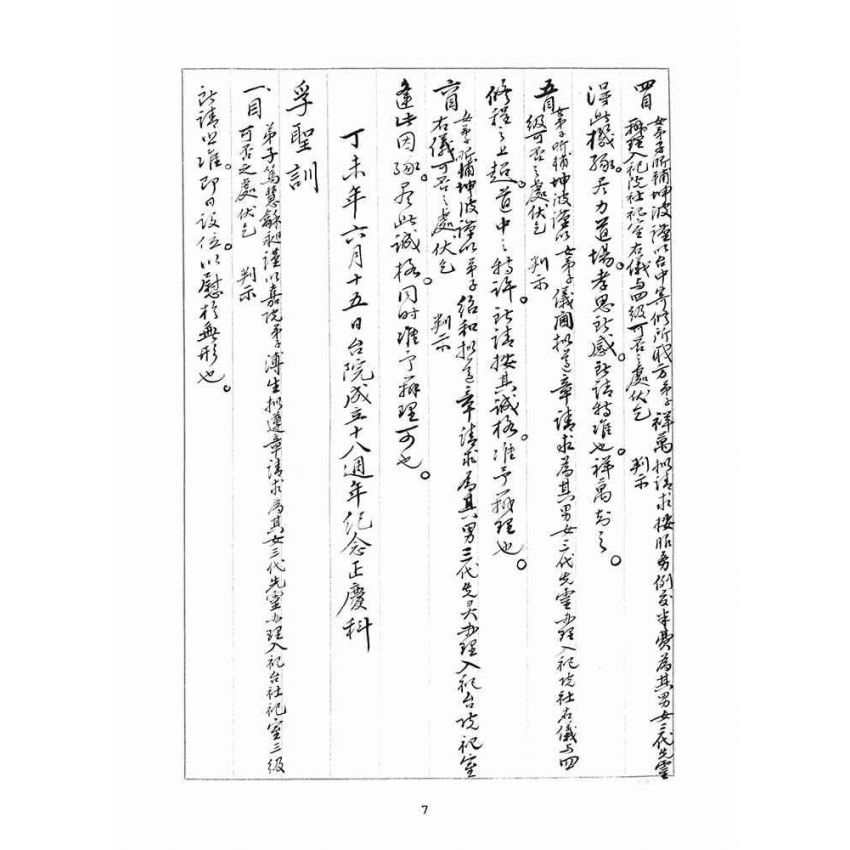 四目 女弟子昕補坤波謹以台中寄修所職方弟子祥萬擬請求按服務例発半費為其男女三代先靈
辦理入祀院社祀室右儀与四級可否之處伏乞 判示
得此機緣。尽力道場。孝思所感。所請特准也。祥萬知之。
五目 女弟子昕補坤波謹以女弟子儀圃擬遵章請求為其男女三代先靈办理入祀院社右儀与四
級可否之處伏乞 判示
修程之上超。道中之特許。所請按其誠格。准予辦理也。
六目 女弟子昕補坤波謹以弟子紹和擬遵章請求為其男三代先灵办理入祀台院祀室
右儀可否之處伏乞 判示
逢此因緣。居此誠格。同時准予辦理可也。
丁未年六月十五日台院成立十八週年紀念正慶科
孚聖訓
一目 弟子篤慧龢昶謹以嘉院弟子溥生擬遵章請求為其女三代先靈办理入祀台社祀室三級
可否之處伏乞 判示
所請照准。即日設位。以慰於無形也。
7